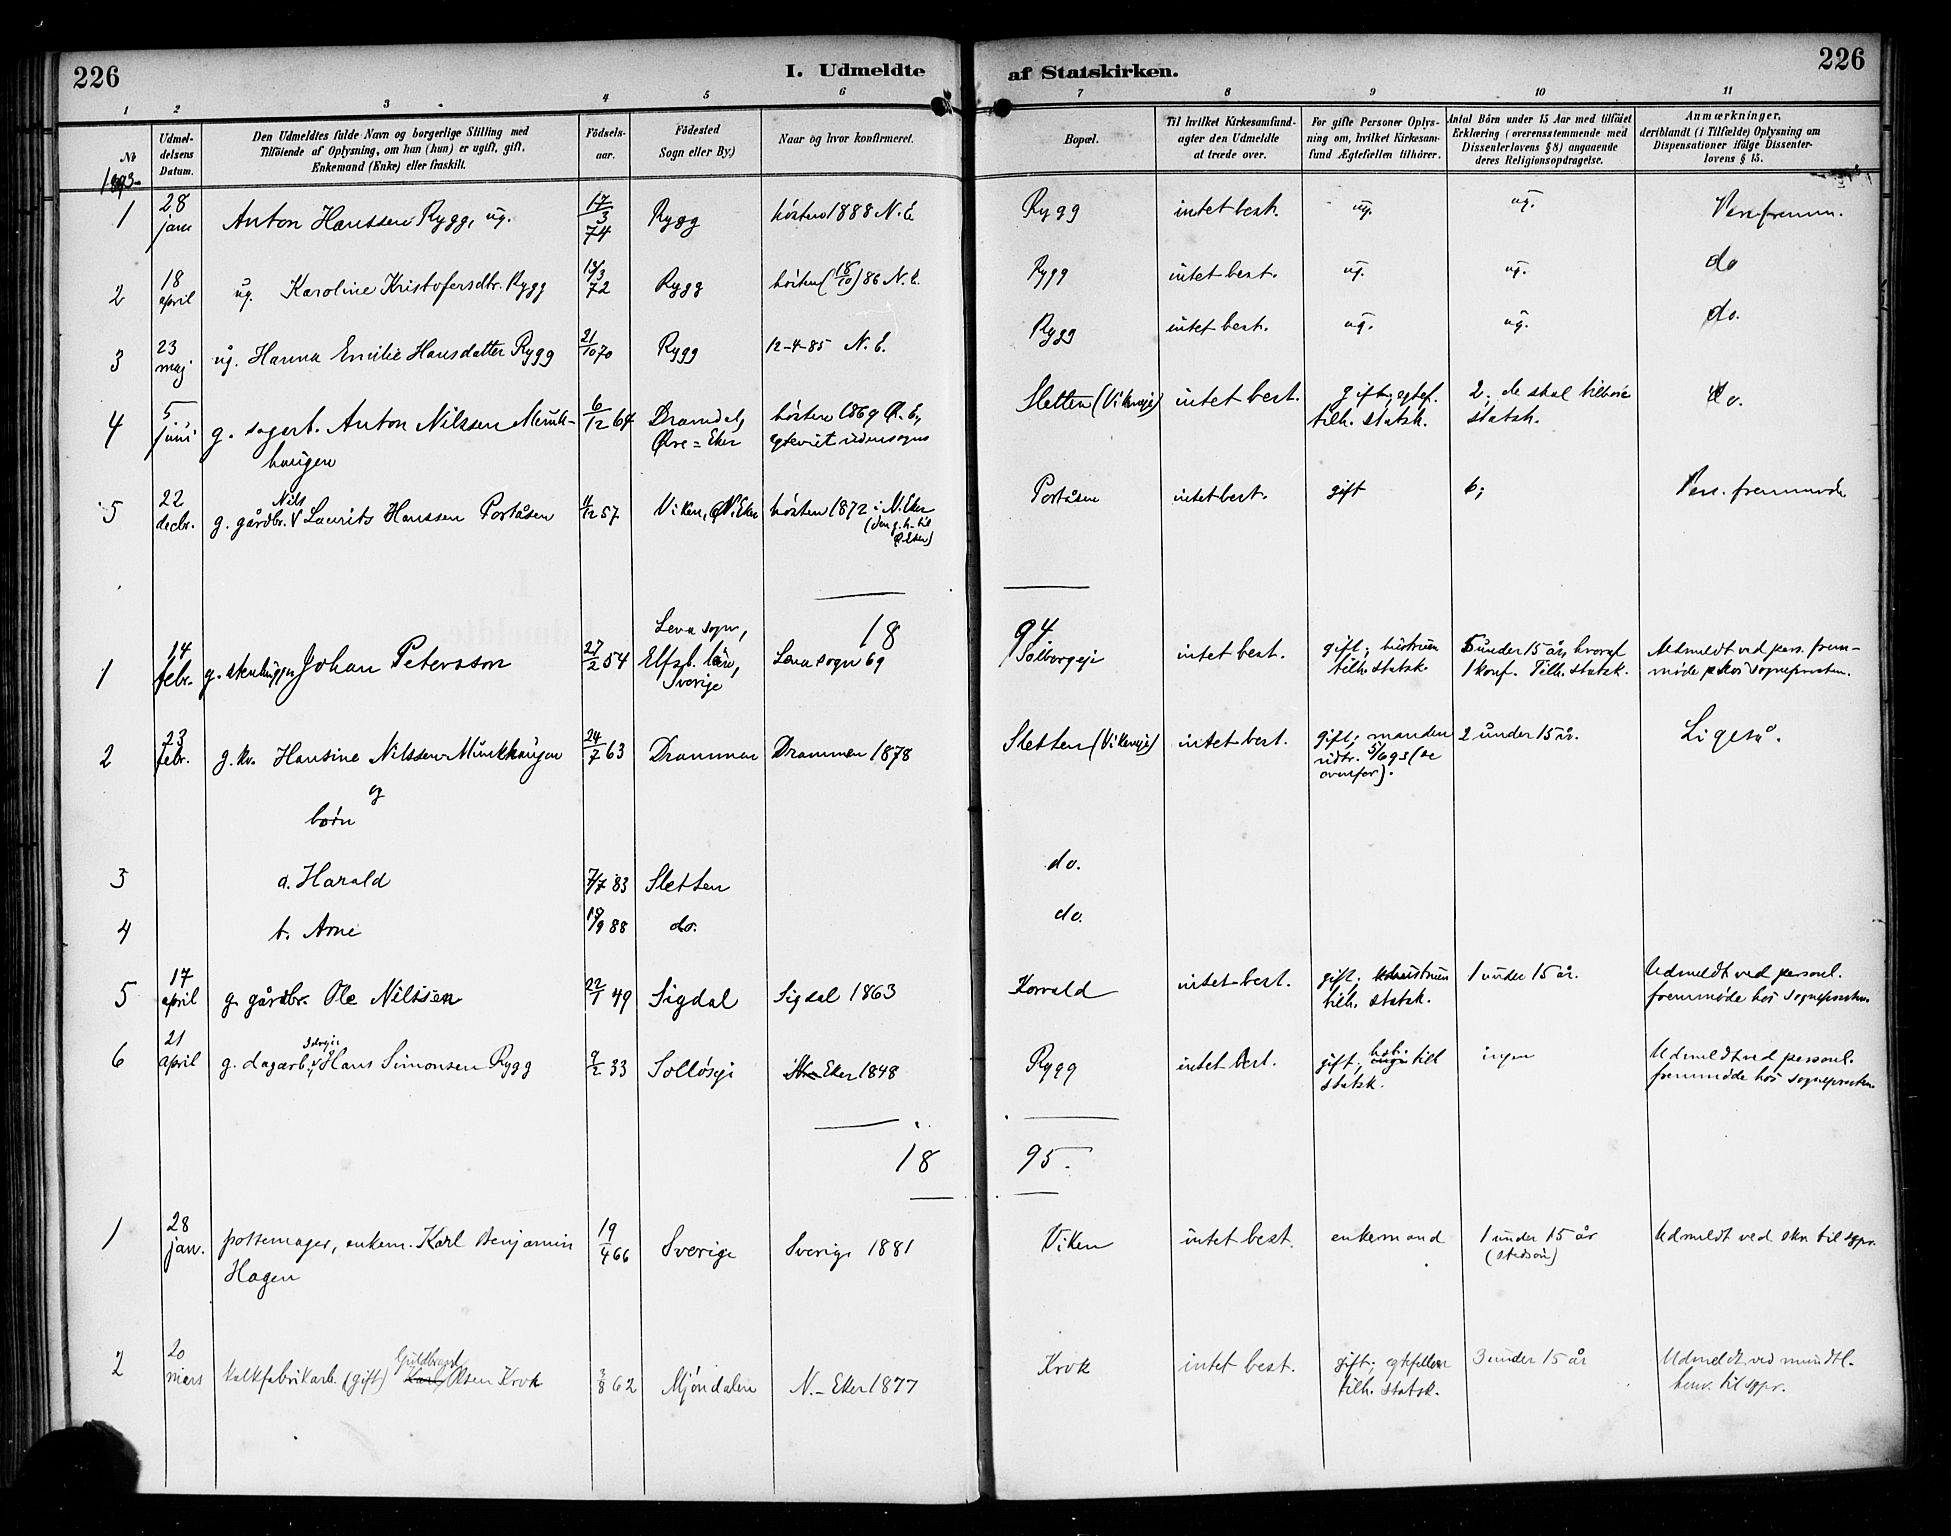 226
I. Udmeldte
af Statskirken.
226
1 2 3 4 5 6 7 8 9 10 11
No
Udmel-
delsens
Datum.
Den Udmeldtes fulde Navn og borgerlige Stilling med
Tilföiende af Oplysning, om han (hun) er ugift, gift,
Enkemand (Enke) eller fraskilt.
Födsels-
aar.
Födested
Sogn eller By.)
Naar og hvor konfirmeret.
Bopæl.
Til hvilket Kirkesamfund-
agter den Udmeldte
at træde over.
For gifte Personer Oplys-
ning om, hvilket Kirkesam-
fund Ægtefællen tilhörer.
Antal Börn under 15 Aar med tilföiet
Erklæring (overensstemmende med
Dissenterlovens § 8) angaaende
deres Religionsopdragelse.
Anmærkninger,
deriblandt (i Tilfælde) Oplysning om
Dispensationer ifölge Dissenter-
lovens § 15.
1893
1 28 jan Anton Hanssen Rygg, ug. 17/3 74 Rygg hösten 1888 N. E. Rygg intet best. ug. ug. Pers. fremm.
2 18 april ug. Karoline Kristofersdtr. Rygg 13/3 72 Rygg hösten (18/10) 86 N. E. Rygg intet best. ug. ug. do
3 23 maj ug. Hanna Emilie Hansdatter Rygg 21/10 70 Rygg 12-4-85 N. E. Rygg intet best. ug. ug. do.
4 5 juni g. sagarb. Anton Nilssen Munk- 6/12 64 hösten 1869 Ø. E., Sletten (Vikeneje) intet best. gift; egtef. 2; de skal tilhöre do.
haugen Øvre=Eker tilh. statsk. statsk.
5 22 decbr. g. gårdbr. Nils Laurits Hanssen Portåsen 4/12 57 Viken, N. Eker hösten 1872 i N. Eker Portåsen intet best. gift 6; Pers. fremmöde
18 94
1 14 febr. g. stenhugger Johan Petersson 27/2 54 Lena sogn, Lena sogn 69 Solbergeje intet best. gift; hustruen 5 under 15 år, hvoraf Udmeldt ved pers. frem-
Elfsb. län, tilh. statsk. 1 konf. Tilh. statsk. möde hos sognepresten.
Sverige
2 23 febr. g. kv. Hansine Nilssen Munkhaugen 24/7 63 Drammen Drammen 1878 Sletten (Vikeneje) intet best. gift; manden 2 under 15 år. Ligeså.
udtr. 5/6 93 (se
ovenfor).
og
börn
3 a. Harald 7/7 83 Sletten do.
4 b. Arne 18/9 88 do. do.
5 17 april g. gårdbr. Ole Nilssen 22/1 49 Sigdal Sigdal 1863 Korvald intet best. gift; hustruen 1 under 15 år. Udmeldt ved personl.
tilh. statsk. fremmöde hos sognepresten.
6 21 april g. dagarb. Hans Simonsen Rygg 9/2 33 Sollöseje Eker 1848 Rygg intet best. gift; tilh ingen Udmeldt ved personl.
statsk. fremmöde hos sognepresten.
18 95.
1 28 jan. pottemager, enkem. Karl Benjamin 19/4 66 Sverige Sverige 1881 Viken intet best. enkemand 1 under 15 år Udmeldt ved skr. til sgpr.
Hagen (stedsön)
2 20 mars kalkfabrikarb. (gift) Guldbrand Olsen Krok 3/8 62 Mjöndalen N.-Eker 1877 Krok intet best. gift; egtefellen 3 under 15 år Udmeldt ved mundtl.
tilh. statsk. henv. til sgpr.